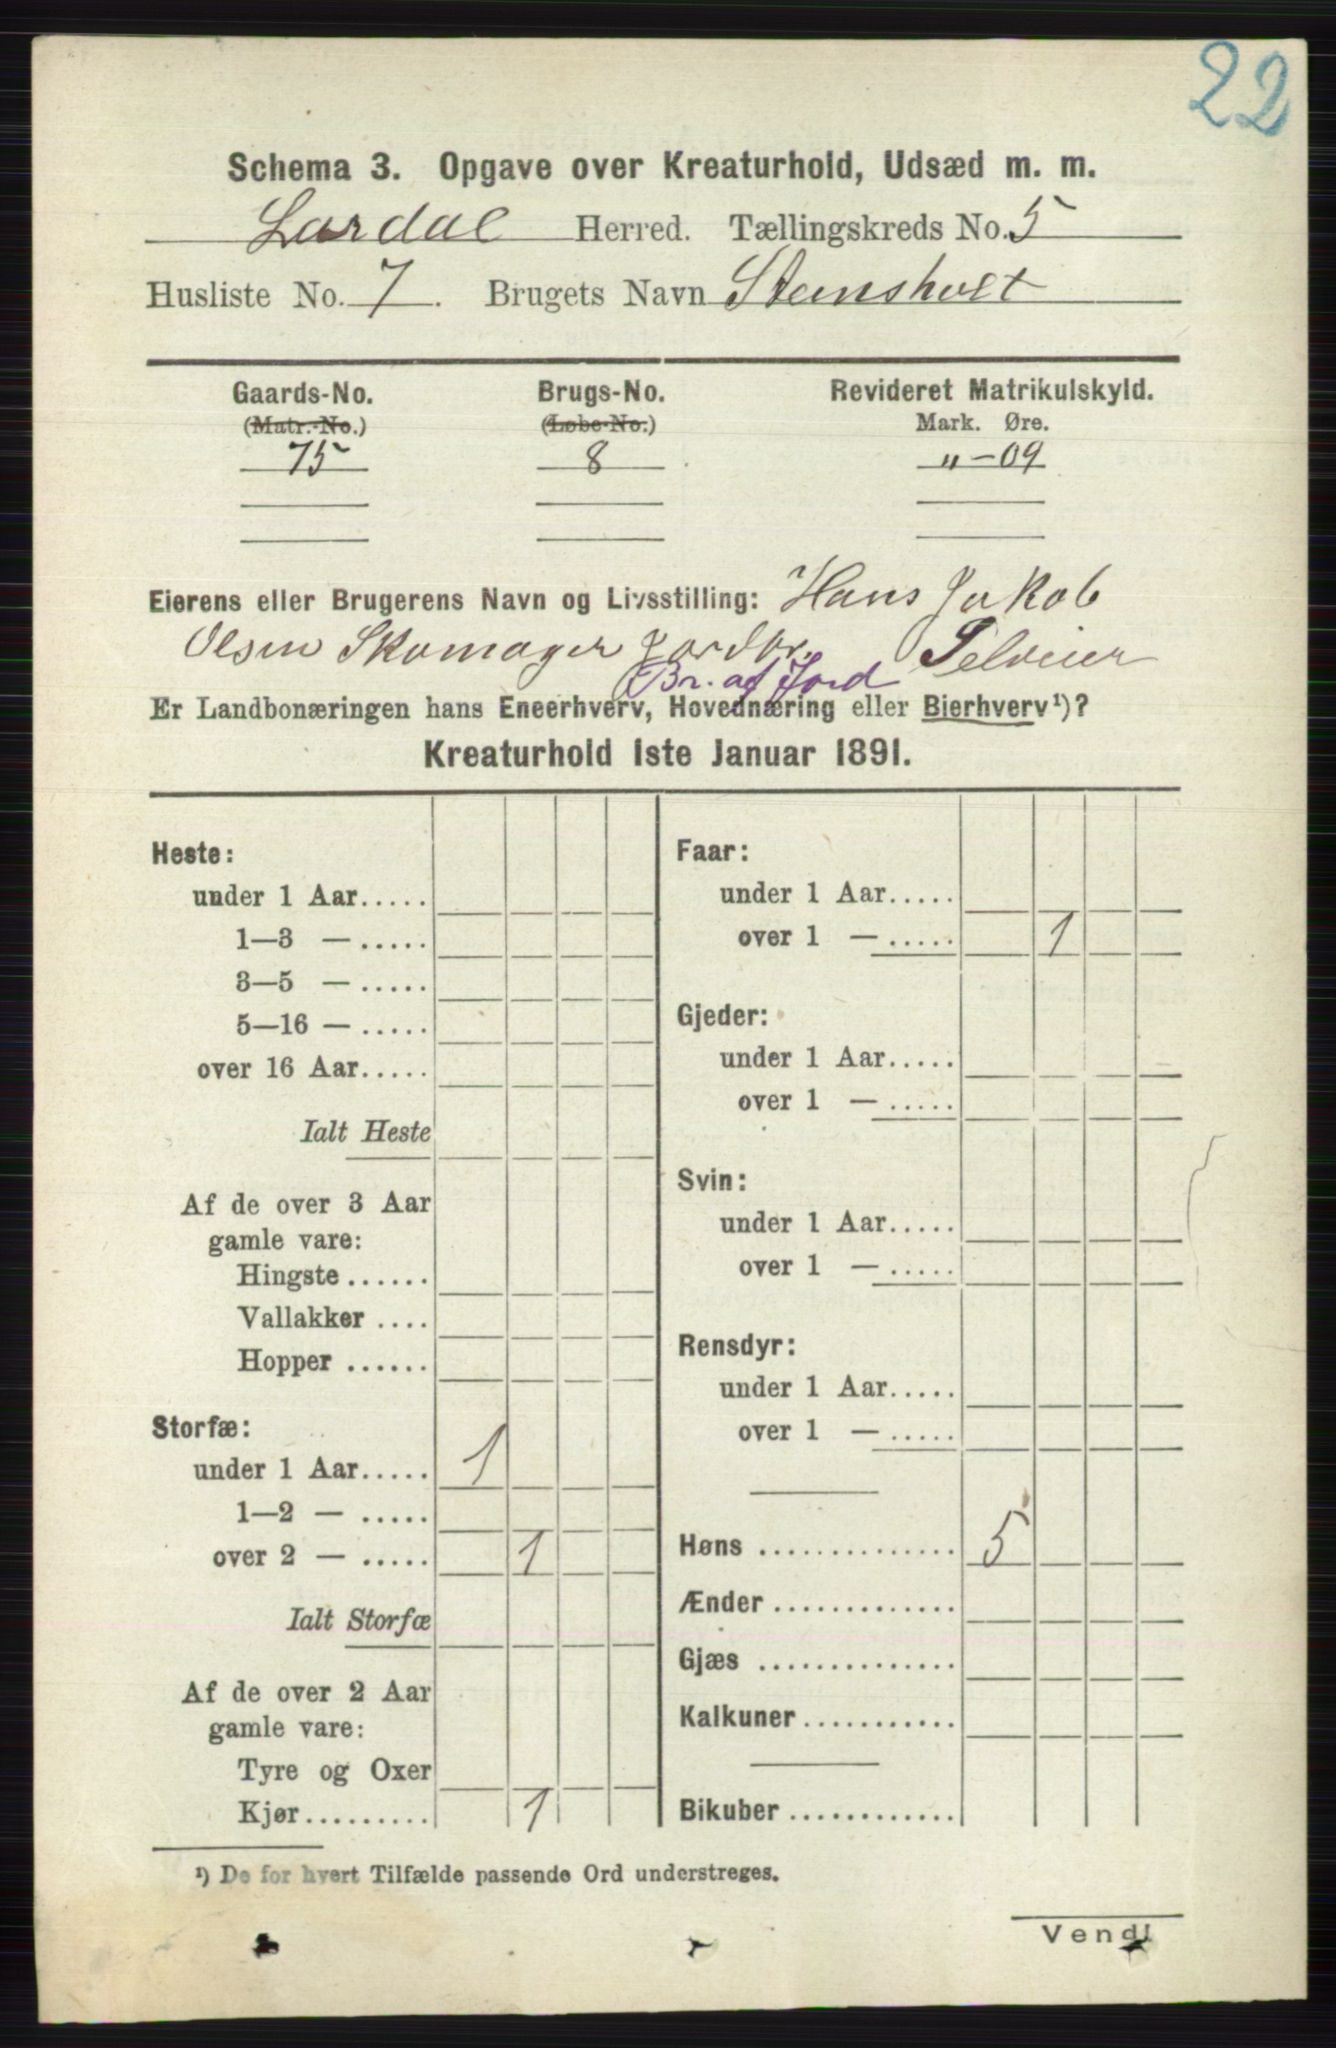 22
Schema 3. Opgave over Kreaturhold, Udsæd m. m.
Lardal Herred. Tællingskreds No. 5
Husliste No. 7. Brugets Navn Stensholt
Gaards-No. Brugs-No. Revideret Matrikulskyld.
(Matr.-No.) (Løbe-No.) Mark. Øre.
75 8 " - 09
Eierens eller Brugerens Navn og Livsstilling: Hans Jakob
Olsen Skomager Jordbr. Selveier
Br. af Jord
Er Landbonæringen hans Eneerhverv, Hovednæring eller Bierhverv¹)?
Kreaturhold 1ste Januar 1891.
Heste:
under 1 Aar.....
1—3 — .....
3—5 — .....
5—16 — .....
over 16 Aar.....
Ialt Heste
Af de over 3 Aar
gamle vare:
Hingste......
Vallakker ....
Hopper ......
Storfæ:
under 1 Aar..... 1
1—2 — .....
over 2 — ..... 1
Ialt Storfæ
Af de over 2 Aar
gamle vare:
Tyre og Oxer
Kjør......... 1
Faar:
under 1 Aar.....
over 1 — ..... 1
Gjeder:
under 1 Aar.....
over 1 — .....
Svin:
under 1 Aar.....
over 1 — .....
Rensdyr:
under 1 Aar.....
over 1 — .....
Høns .............. 5
Ænder .............
Gjæs ..............
Kalkuner...........
Bikuber ............
¹) De for hvert Tilfælde passende Ord understreges.
Vend!